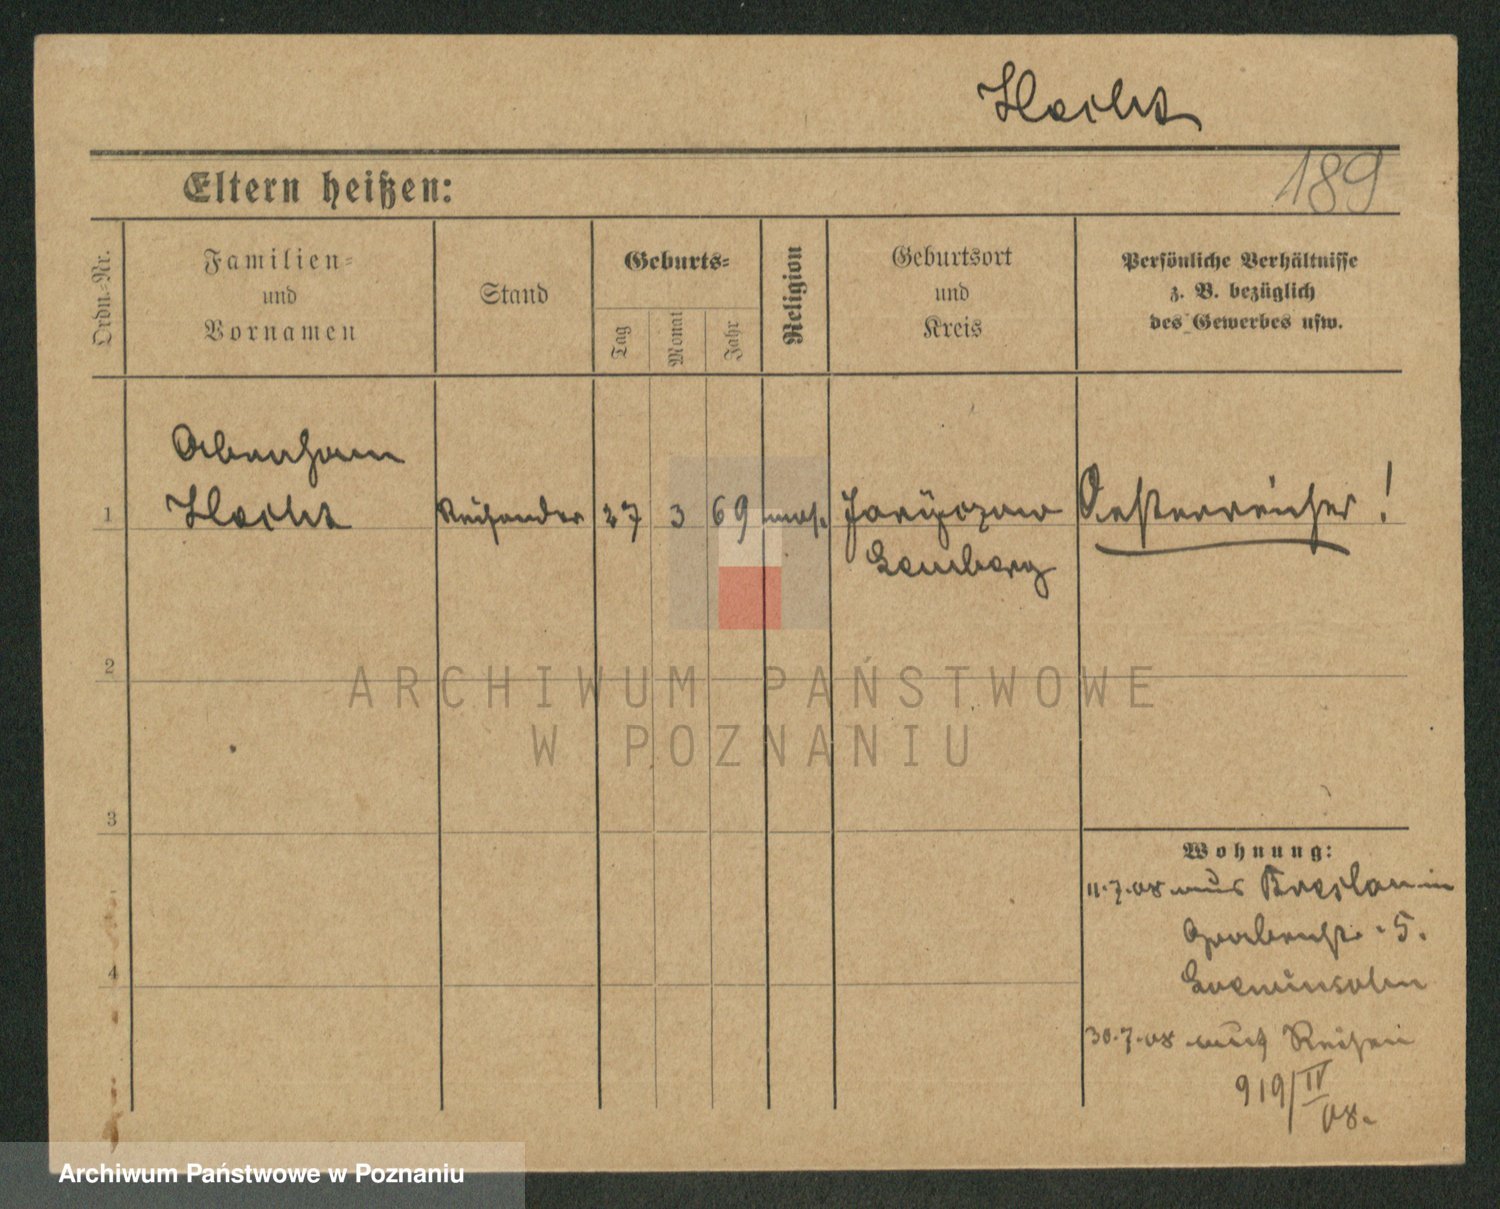 Hecht
189
Eltern heißen:
Ordn.-Nr.
Familien-
und
Vornamen
Stand
Geburts-
Tag
Monat
Jahr
Religion
Geburtsort
und
Kreis
Persönliche Verhältnisse
z. B. bezüglich
des Gewerbes usw.
Abraham
1 Hecht Reisender 27 3 69 mos. Oesterreicher!
Lemberg
2
ARCHIWUM PAŃSTWOWE
W POZNANIU
3
Wohnung:
11.7.08 aus Breslau in
Grabenstr. 5.
4
30.7.08 auf Reisen
919/IV
08.
Archiwum Państwowe w Poznaniu